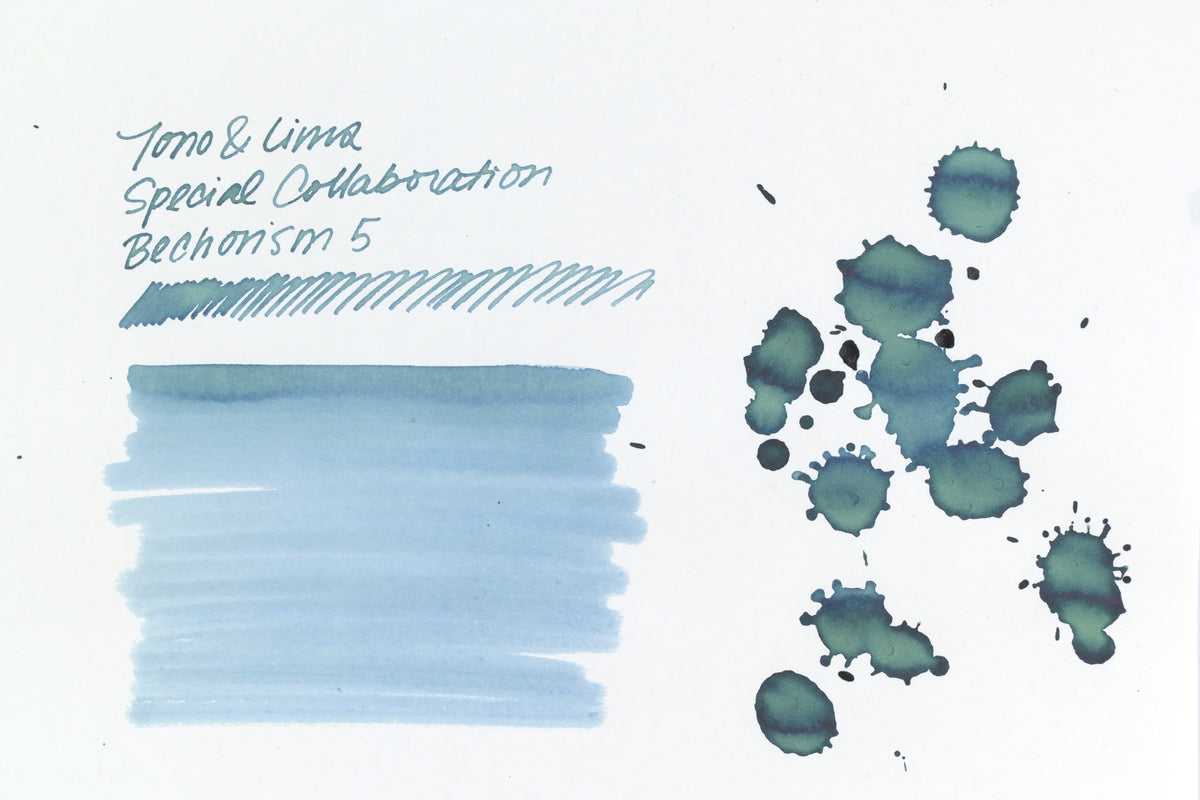 Tono & Lima
Special Collaboration
Bechorism 5